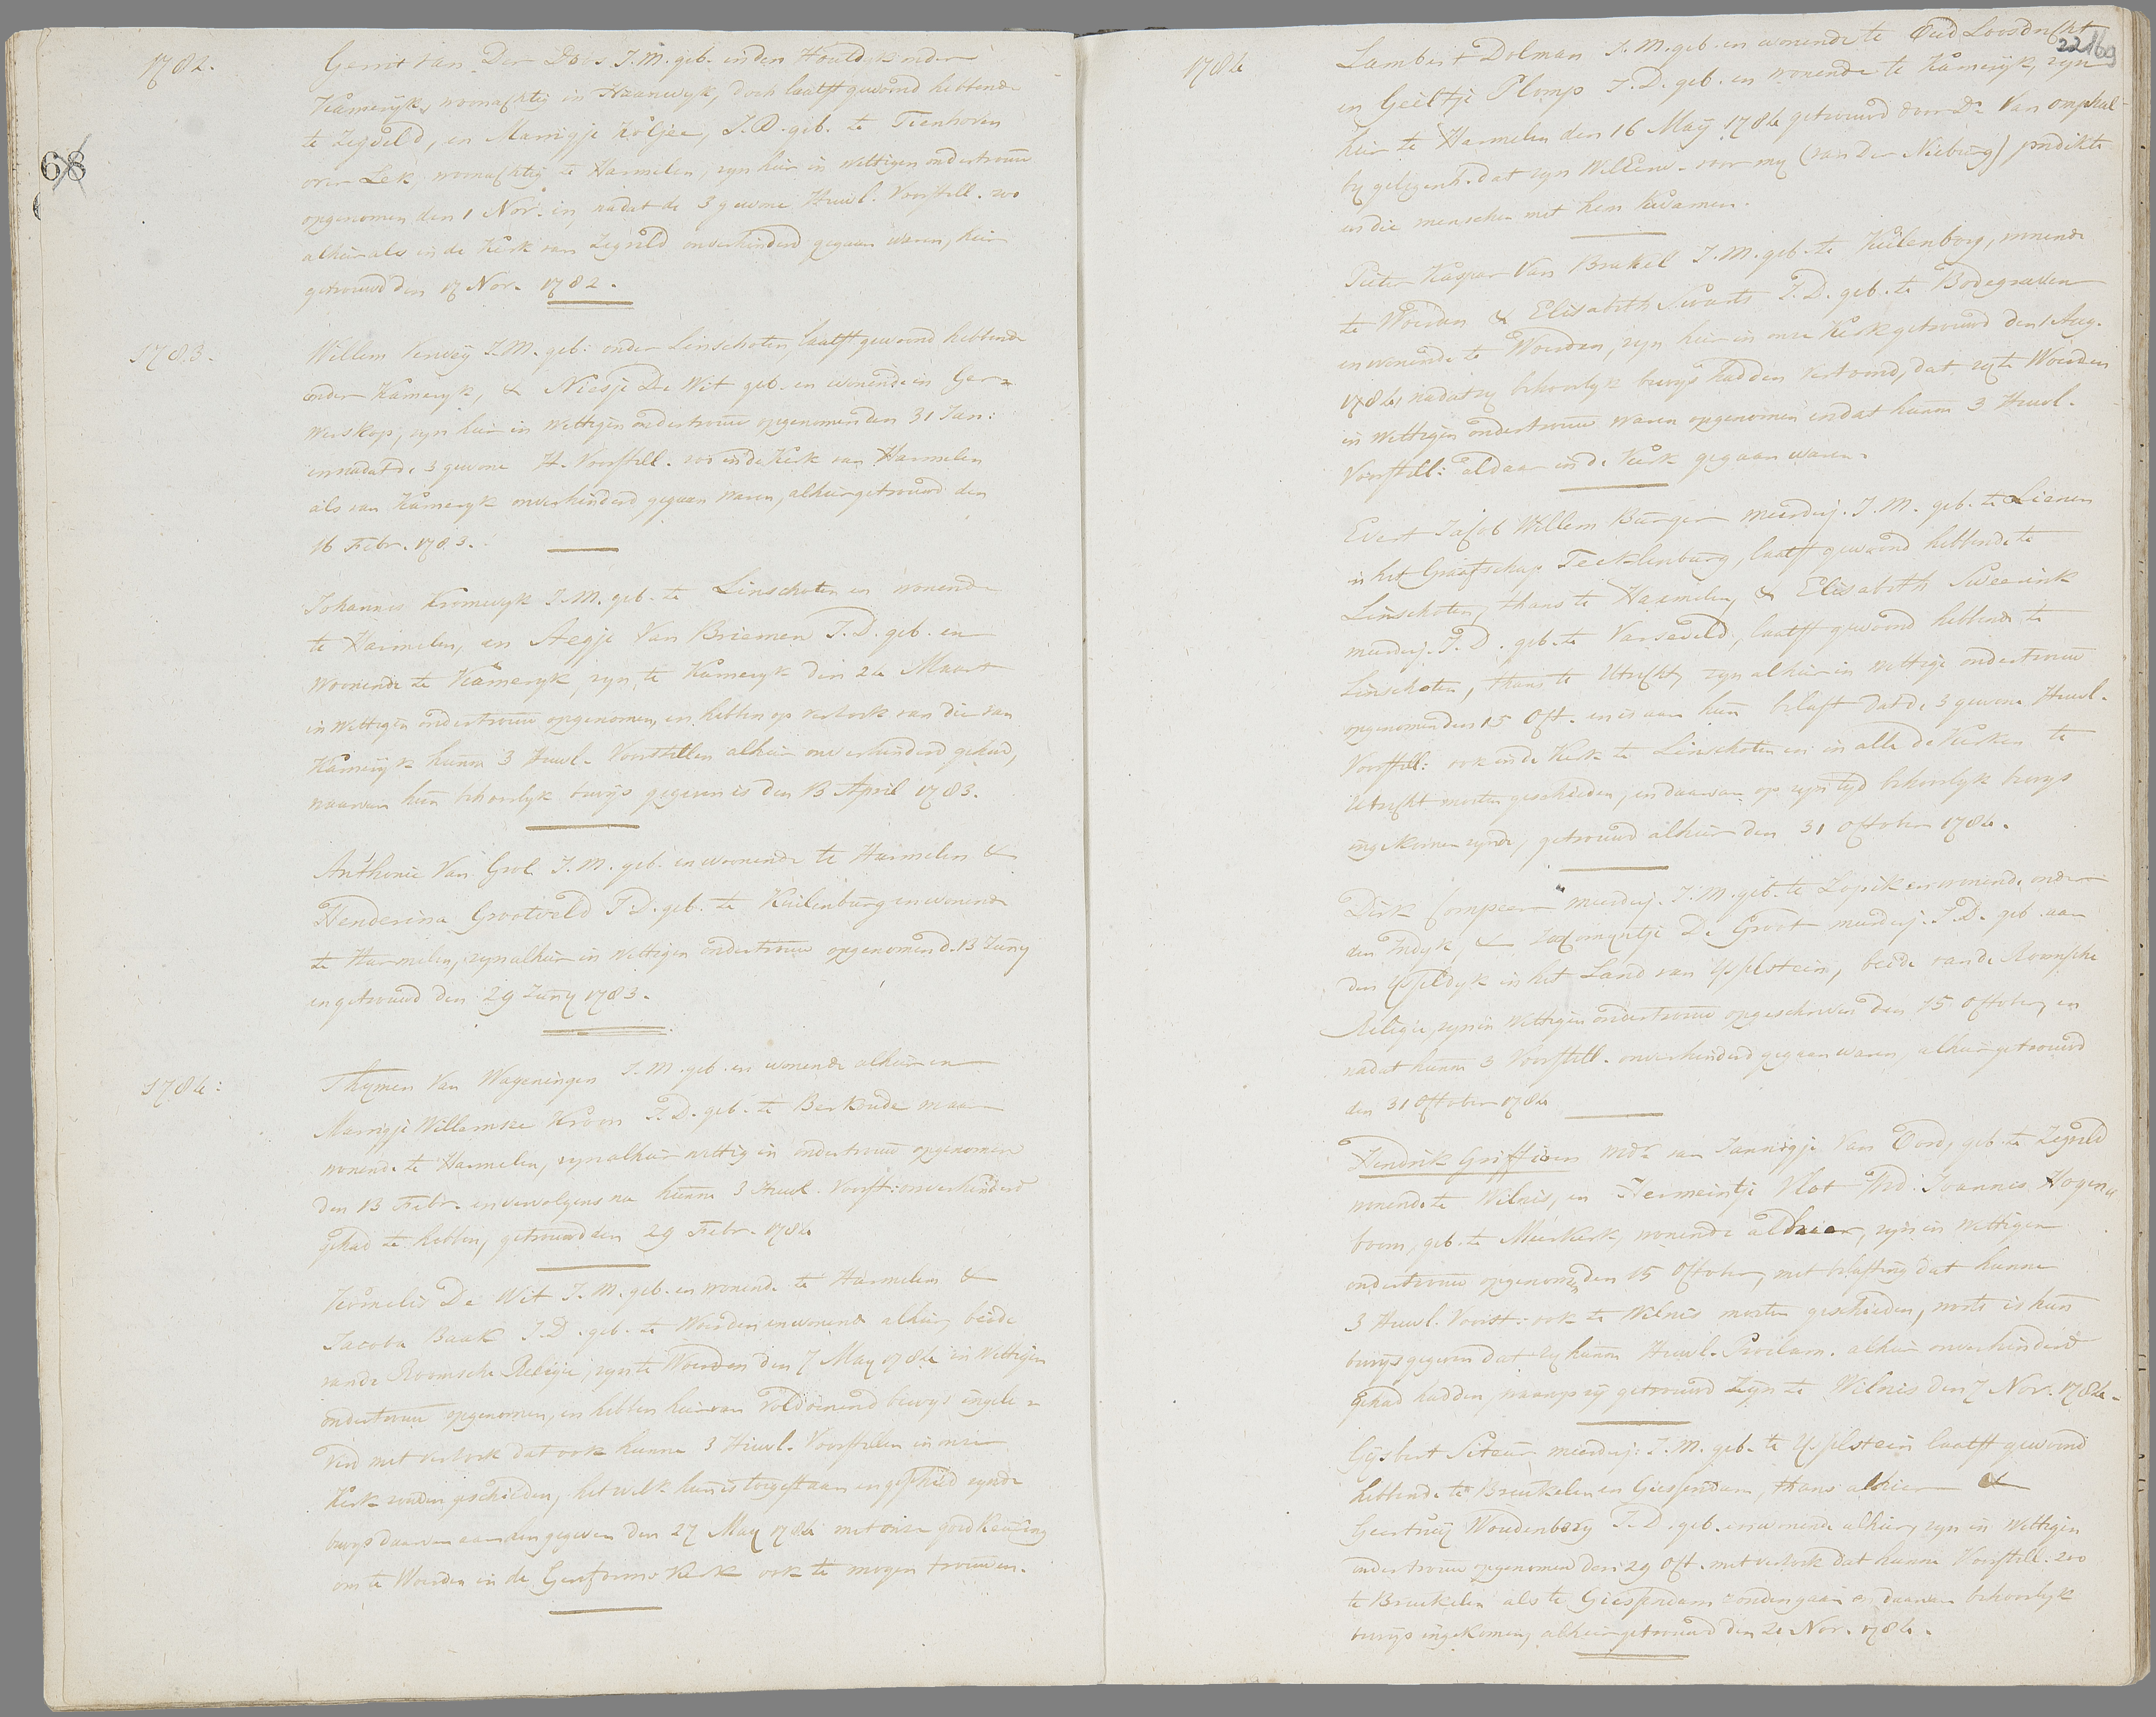 68
1782.
Gerrit van Der Does J.M. geb. in den Houtdyk onder
Kameryk, woonachtig in Haanwyk, doch laatst gewoond hebbende
te Zegveld, en Marrigje Koljee, J.D. geb. te Tienhoven
over Lek, woonachtig te Harmelen, zyn hier in wettigen ondertrouw
opgenomen den 1 Nov. en, nadat de 3 gewone Huwl. Voorstell. zoo
alhier als in de Kerk van Zegveld onverhinderd gegaan waren, hier
getrouwd den 17 Nov. 1782.
1783.
Willem Verweij J.M. geb: onder Linschoten, laatst gewoond hebbende
onder Kameryk, & Niesje De Wit geb. en wonende in Ger=
werskop, zyn hier in wettigen ondertrouw opgenomen den 31 Jan:
en nadat de 3 gewone H. Voorstell. zoo in de Kerk van Harmelen
als van Kameryk onverhinderd gegaan waren, alhier getrouwd den
16 Febr. 1783.
Johannes Kromwyk J.M. geb. te Linschoten en wonende
te Harmelen, en Aegje Van Briemen J.D. geb. en
woonende te Kameryk, zyn te Kameryk den 24 Maart
in wettigen ondertrouw opgenomen, en hebben op verzoek van die van
Kameryk hunne 3 Huwl. Voorstellen alhier onverhinderd gehad,
waarvan hun behoorlyk bewys gegeven is den 13 April 1783.
Anthonie Van Grol J.M. geb. en woonende te Harmelen &
Henderina Grootveld J.D. geb. te Kuilenburg en wonende
te Harmelen, zyn alhier in wettigen ondertrouw opgenomen d. 13 Juny
en getrouwd den 29 Juny 1783.
1784:
Thymen Van Wageningen J.M. geb. en wonende alhier en
Marrigje Willemsze Kroon J.D. geb. te Berkoude maar
wonende te Harmelen, zyn alhier wettig in ondertrouw opgenomen
den 13 Febr. en vervolgens na hunne 3 Huwl. Voorst: onverhinderd
gehad te hebben, getrouwd den 29 Febr. 1784
Kornelis De Wit J.M. geb. en wonende te Harmelen &
Jacoba Baak J.D. geb. te Woerden en wonende alhier, beide
van de Roomsche Religie, zyn te Woerden den 7 May 1784 in wettigen
ondertrouw opgenomen, en hebben hiervan voldoenend bewys ingele=
verd met verzoek dat ook hunne 3 Huwl. Voorstellen in onze
Kerk zouden geschieden, hetwelk hun is toegestaan en geschied zynde
bewys daarvan aan hen gegeven den 27 May 1784 met onze goedkeuring
om te Woerden in de Gereformde Kerk ook te mogen trouwen.
22 169
1784
Lambert Dolman J.M. geb. en wonende te Oud Loosdrecht
en Geertje Plomp J.D. geb. en wonende te Kameryk, zyn
hier te Harmelen den 16 May 1784 getrouwd door Ds. Van Omphal-
by gelegenh. dat zyn WelEerw. voor my (van Der Nieburg) predikte
en die menschen met hem kwamen.
Pieter Kaspar Van Brakel J.M. geb. te Kuilenborg, wonende
te Woerden & Elisabeth Swarts J.D. geb. te Bodegraven
en wonende te Woerden, zyn hier in onze Kerk getrouwd den 1 Aug.
1784, nadat zy behoorlyk bewys hadden vertoond, dat zy te Woerden
in wettigen ondertrouw waren opgenomen en dat hunne 3 Huwl.
Voorstell: aldaar in de Kerk gegaan waren.
Evert Jacob Willem Burger meerderj. J.M. geb. te Lienen
in het Graafschap Tecklenburg, laatst gewoond hebbende te
Linschoten, thans te Harmelen, & Elisabeth Sweerink
meerderj. J.D. geb. te Varseveld, laatst gewoond hebbende te
Linschoten, thans te Utrecht, zyn alhier in wettige ondertrouw
opgenomen den 15 Oct. en is aan hun belast dat de 3 gewone Huwl.
Voorstell: ook in de Kerk te Linschoten en in alle de Kerken te
Utrecht moeten geschieden, en daarvan op zyn tyd behoorlyk bewys
ingekomen zynde, getrouwd alhier den 31 October 1784.
Dirk Compeer meerderj. J.M. geb. te Lopik en wonende onder
den Indyk, & Jacomyntje De Groot meerderj. J.D. geb. aan
den Ysseldyk in het Land van Ysselstein, beide van de Roomsche
Religie, zyn in wettigen ondertrouw opgeschreven den 15 October, en
nadat hunne 3 Voorstell. onverhinderd gegaan waren, alhier getrouwd
den 31 October 1784
Hendrik Griffioen Wedr. van Jannigje Van Oord, geb. te Zegveld
wonende te Wilnis, en Hermeintje Vlot Wed. Joannes Hogen=
boom, geb. te Meerkerk, wonende alhier, zyn in wettigen
ondertrouw opgenomen den 15 October, met belasting dat hunne
3 Huwl. Voorst: ook te Wilnis moeten geschieden, voorts is hun
bewys gegeven dat zy hunne Huwl. Proclam. alhier onverhinderd
gehad hadden, waarop zy getrouwd zyn te Wilnis den 7 Nov. 1784.
Gysbert Siteur meerderj: J.M. geb. te Ysselstein laatst gewoond
hebbende te Breukelen en Giessendam, thans alhier &
Geertruy Woudenberg J.D. geb. en wonende alhier, zyn in wettigen
ondertrouw opgenomen den 29 Oct. met verzoek dat hunne Voorstell. zoo
te Breukelen als te Giessendam zouden gaan en daarvan behoorlyk
bewys ingekomen, alhier getrouwd den 21 Nov. 1784.